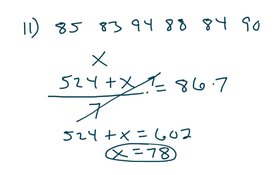 11) 85 83 94 88 84 90
x
524 + x / 7 · 7 = 86 · 7
524 + x = 602
x = 78